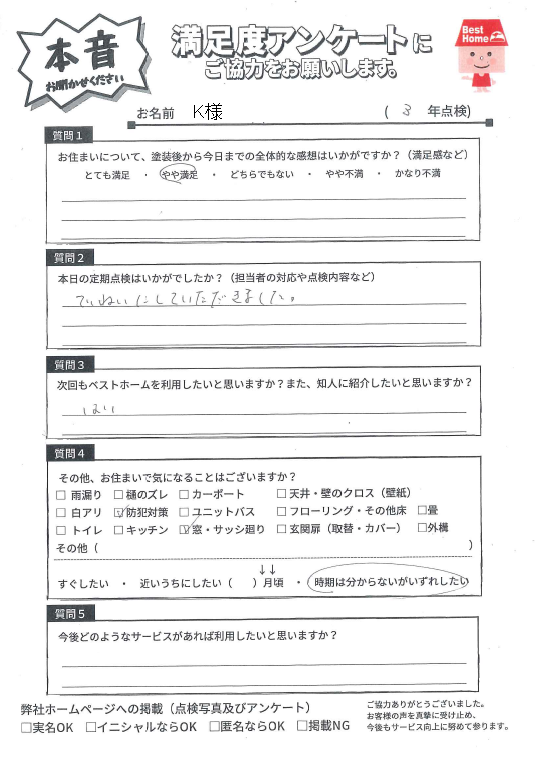 本音
お聞かせください
満足度アンケートに
ご協力をお願いします。
Best Home
お名前 K様 ( 3 年点検)
質問1
お住まいについて、塗装後から今日までの全体的な感想はいかがですか?(満足感など)
とても満足 ・ やや満足 ・ どちらでもない ・ やや不満 ・ かなり不満
質問2
本日の定期点検はいかがでしたか?(担当者の対応や点検内容など)
ていねいにしていただきました。
質問3
次回もベストホームを利用したいと思いますか?また、知人に紹介したいと思いますか?
はい
質問4
その他、お住まいで気になることはございますか?
□ 雨漏り □ 樋のズレ □ カーポート □ 天井・壁のクロス(壁紙)
□ 白アリ ☑ 防犯対策 □ ユニットバス □ フローリング・その他床 □畳
□ トイレ □ キッチン ☑ 窓・サッシ廻り □ 玄関扉(取替・カバー) □外構
その他( )
↓↓
すぐしたい ・ 近いうちにしたい( )月頃 ・ 時期は分からないがいずれしたい
質問5
今後どのようなサービスがあれば利用したいと思いますか?
弊社ホームページへの掲載(点検写真及びアンケート)
□実名OK □イニシャルならOK □匿名ならOK □掲載NG
ご協力ありがとうございました。
お客様の声を真摯に受け止め、
今後もサービス向上に努めて参ります。